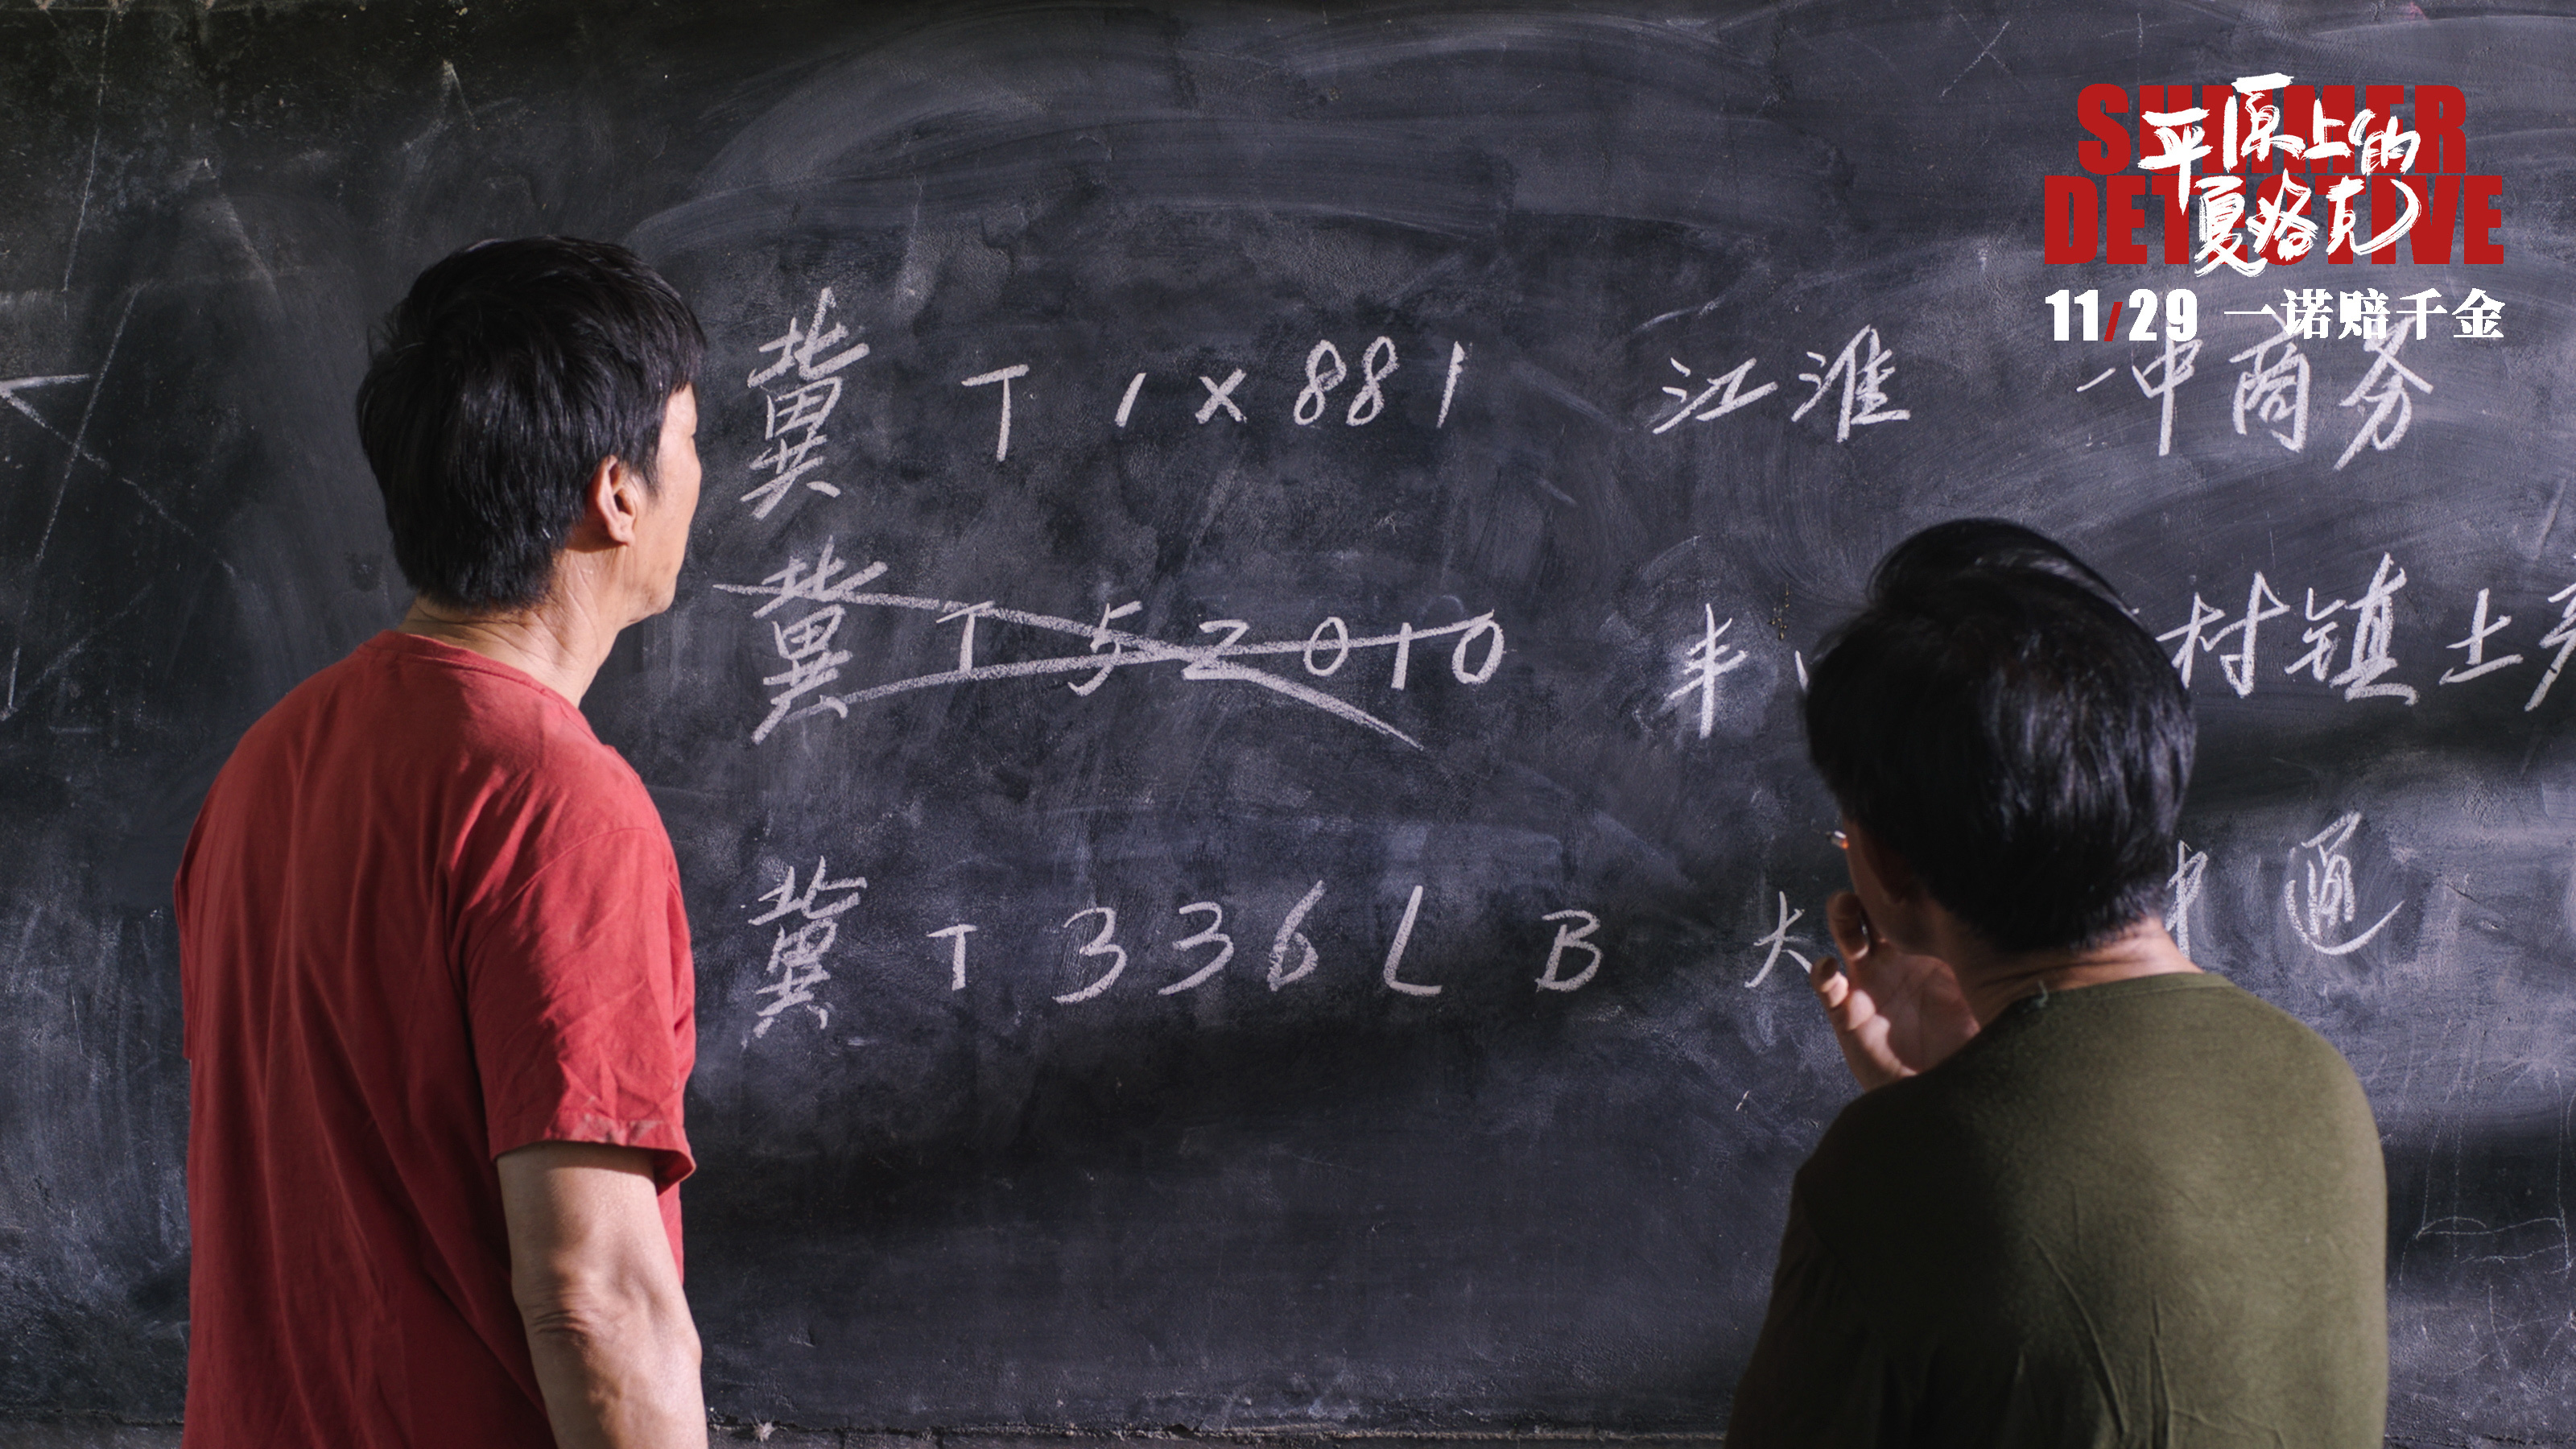 SUMMER
DETECTIVE
平原上的
夏洛克
11/29 一诺赔千金
冀 T 1 X 881 江淮 一中商务
冀 T 5 2 0 1 0 丰 村镇土
冀 T 3 3 6 L B 大 中 通